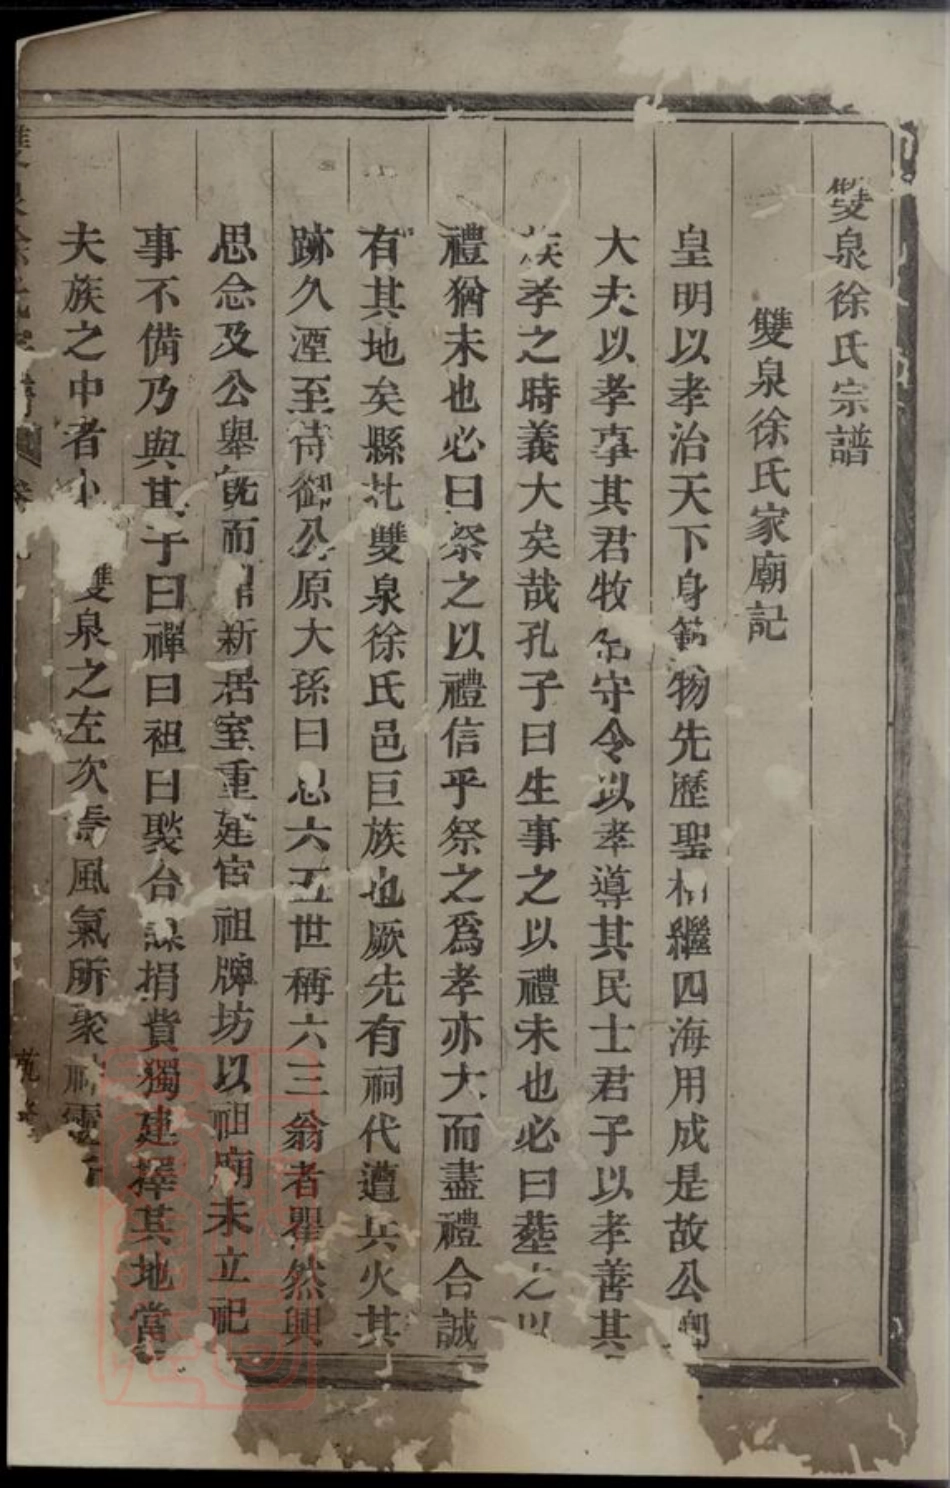 雙泉徐氏宗譜
雙泉徐氏家廟記
皇明以孝治天下身範物先歷聖相繼四海用成是故公卿
大夫以孝事其君牧伯守令以孝導其民士君子以孝善其
族孝之時義大矣哉孔子曰生事之以禮未也必曰塟之以
禮猶未也必曰祭之以禮信乎祭之爲孝亦大而盡禮合誠
有其地矣縣北雙泉徐氏邑巨族也厥先有祠代遭兵火其
跡久湮至待御公原大孫曰思六五世稱六三翁者瞿然興
思念及公舉旣而開新居室重建宦祖牌坊以祖廟未立祀
事不備乃與其子曰禪曰祖曰聚台謀捐費獨建擇其地當
夫族之中者卜雙泉之左次焉風氣所聚
雙泉徐氏宗譜